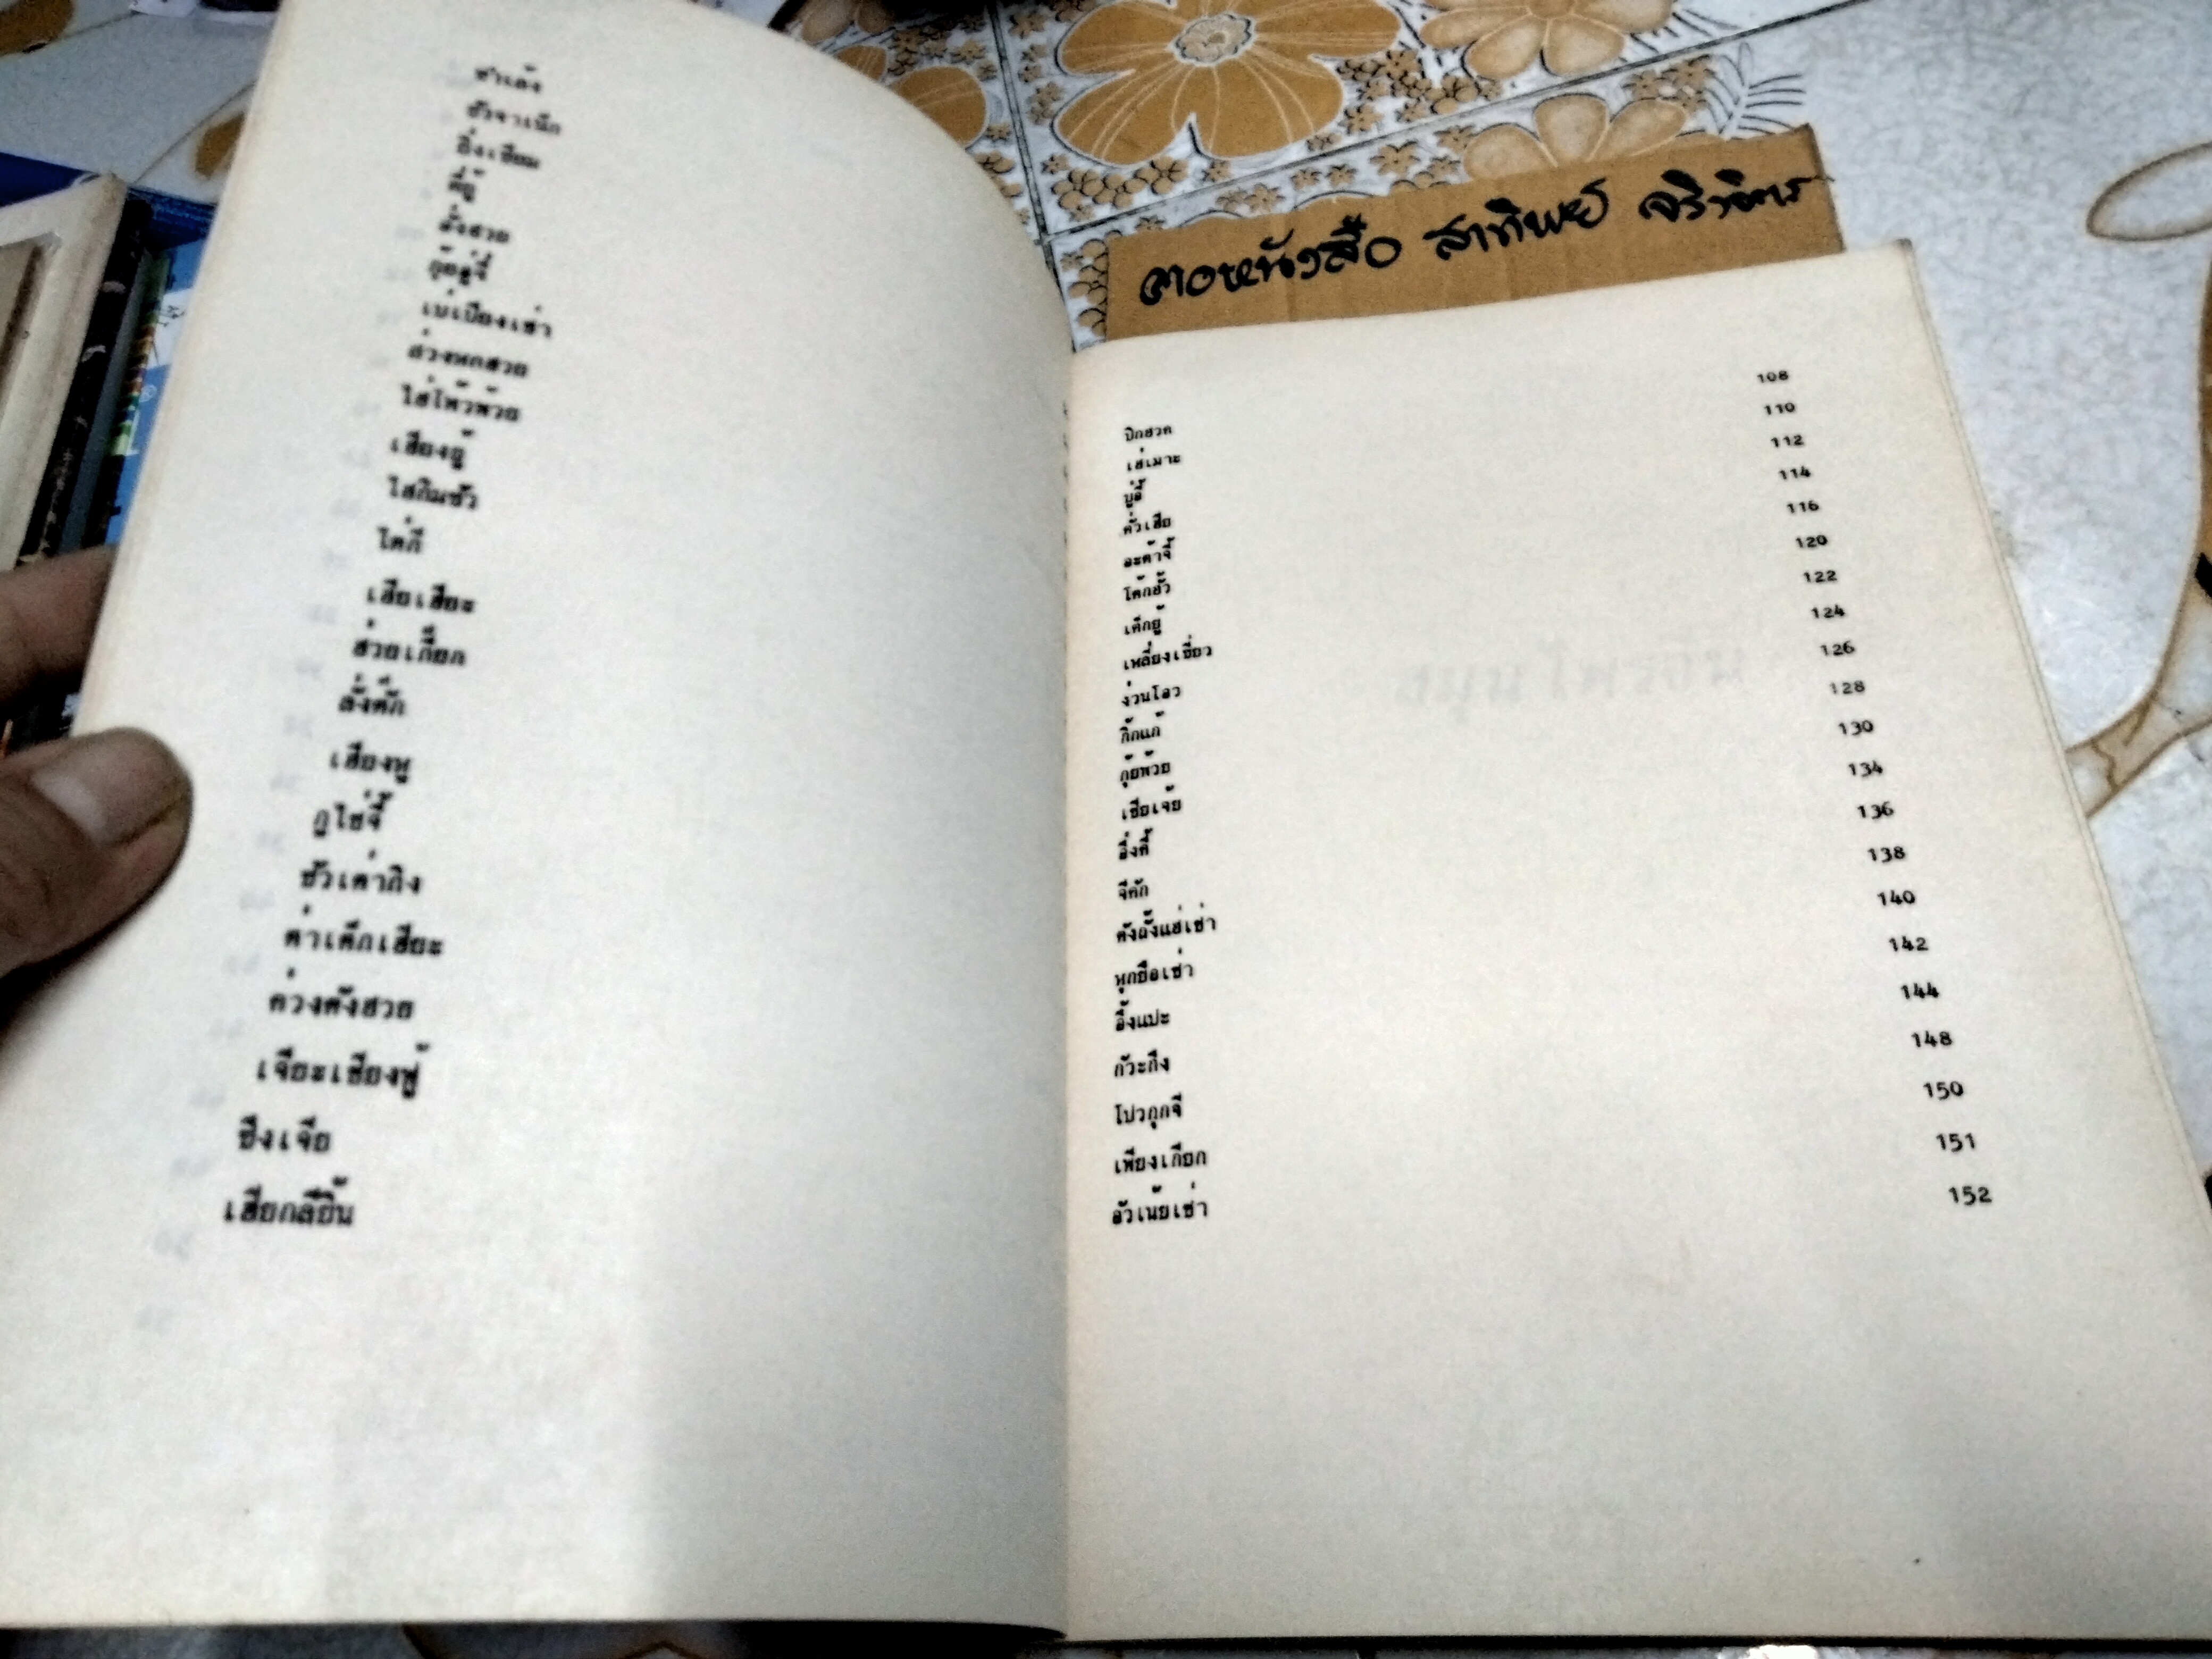 ซาเล้ง
ชัวจาเน็ก
อิ่งเซียม
ตี่ยู้
ลั่งสวย
กุ้ยลู่จี้
เบ่เปียงเช่า
ส่วงพกสวย
ไส่โห้วห้วย
เสียงยู้
ไสกิมซัว
ไต่กี
เฮียเฮียะ
ส่วยเกี๊ยก
ลั่งต๊ก
เฮียงหู
กูไช่จี้
ชัวเต่ากิง
ต่าเต็กเฮียะ
ต่วงตังสวย
เจียะเชียงพู้
ซึงเจีย
เฮียกลียิ้น
ตาอหนังสือ สาทิพย์ จริวจิตร
ปึกฮวด 108
เส่เมาะ 110
บู่ลี้ 112
คั่วเฮีย 114
อะต้าจี้ 116
โต้กฮั้ว 120
เต็กยู้ 122
เหลี่ยงเชี่ยว 124
ง่วนโอว 126
กิ๊กแก้ 128
กุ้ยห้วย 130
เชียเจ้ย 134
อึ่งคี้ 136
จีคัก 138
ตังยั้งแฮ่เช่า 140
หุกยือเช่า 142
อึ้งแปะ 144
กัวะกึง 148
โปวกุกจี 150
เพียงเกียก 151
อัวเน้ยเช่า 152